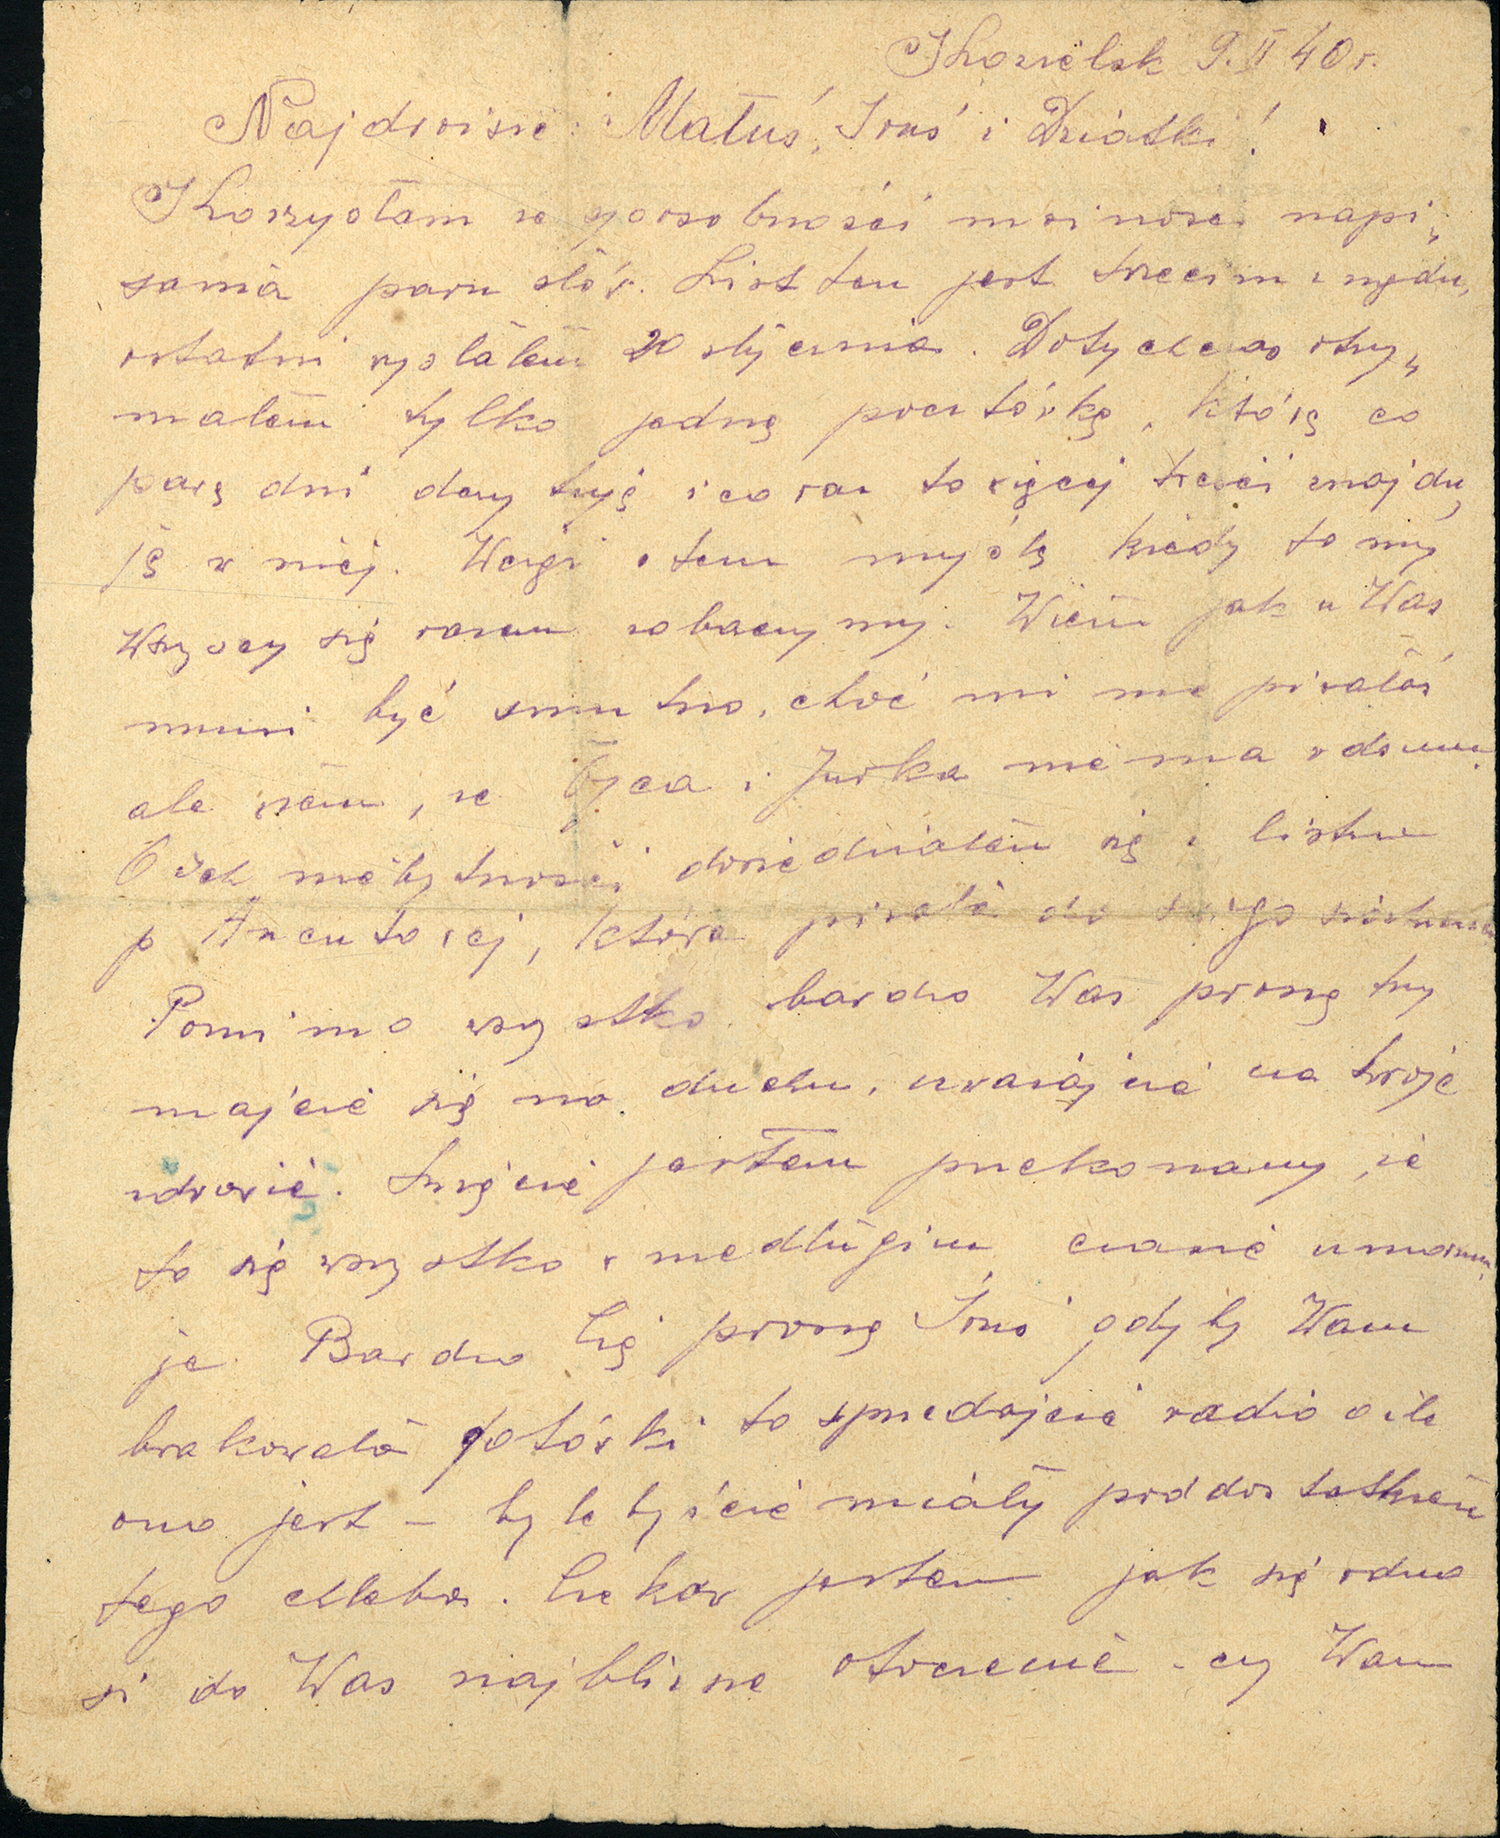 Kozielsk 9.II 40 r.
Najdroższe Matuś, Iruś i Dziatki!
Korzystam ze sposobności możności napi„
sania paru słów. List ten jest trzecim z rzędu,
ostatni wysłałem 20 stycznia. Dotychczas otrzy„
małem tylko jedną pocztówkę, którą co
parę dni czytuję i coraz to więcej treści znajdu„
ję w niej. Wciąż o tem myślę kiedy to my
Wszyscy się razem zobaczymy. Wiem jak u Was
musi być smutno, choć mi nie pisałaś
ale wiem, że Ojca i Jurka nie ma w domu.
O Ich niebytności dowiedziałem się z listu
p Ancutowej, która pisała do swego
Pomimo wszystko bardzo Was proszę trzy
majcie się na duchu, uważajcie na swoje
zdrowie. Święcie jestem przekonany, że
to się wszystko w niedługim czasie unormu„
je. Bardzo Cię proszę Iruś gdyby Wam
brakowało gotówki to sprzedajcie radio o ile
ono jest – byle byście miały pod dostatkiem
tego chleba. Ciekaw jestem jak się odno
si do Was najbliższe otoczenie - czy Wam